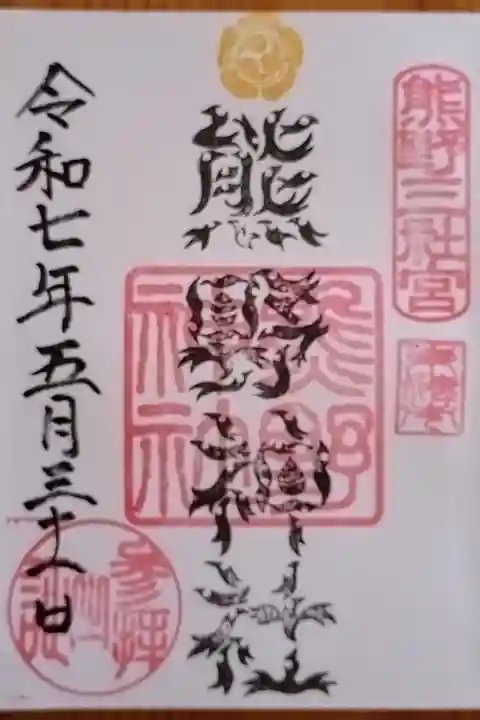 熊野三社宮
熊野神社
熊野
神社
令和七年五月三十一日
参拝
之
証